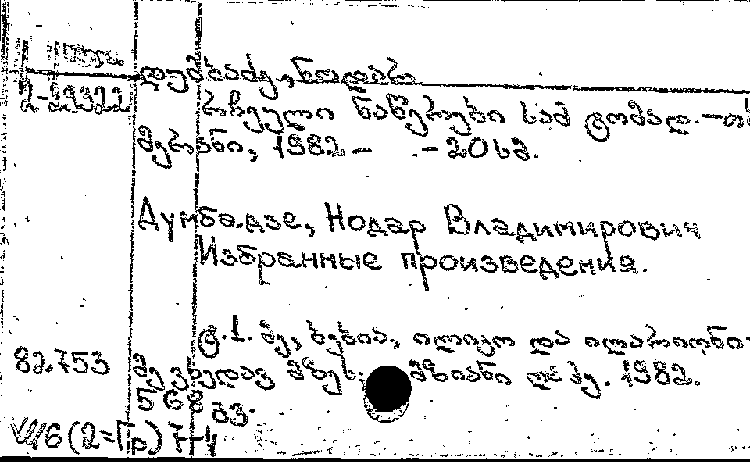 დუმბაძე, ნოდარ
2-29322
რჩეული ნაწერები სამ ტომად. — თბ
მერანი, 1982 — . — 20 სმ.
Думбадзе, Нодар Владимирович
Избранные произведения.
ტ. 1. მე, ბებია, ილიკო და ილარიონი.
82.753 მე ვხედავ მზეს. მზიანი ღამე. 1982.
568 გვ.
6(2=Гр)7-4